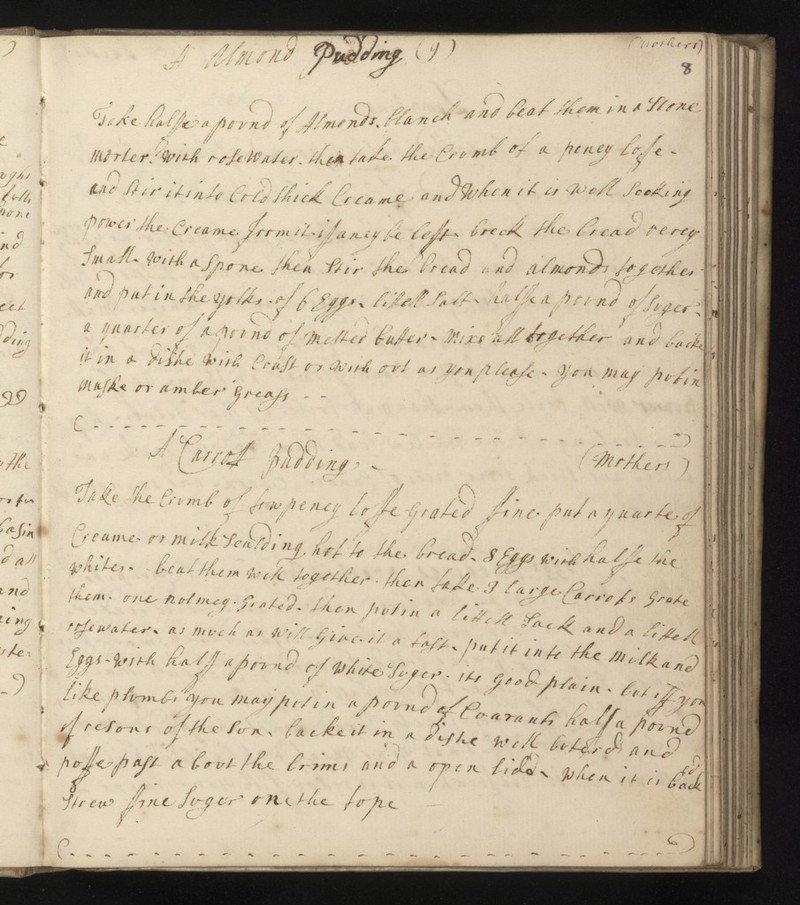 A Almond Pudding (9) (mothers)
8
Take halfe a pound of Almonds. blanch and beat them in a Stone
morter. With rosewater. then take the Cromb of a peney lofe -
and Stir it into Cold thick Creame and When it is Well Soeking
power the Creame from it if aney be left. breek the bread verey
Small. With a Spone then Stir the bread and almonds together
and put in the yolks of 6 Eggs. litell Salt. halfe a pound of Suger.
a quarter of a pound of melted butter. mixs all together and backe
it in a dishe With Crust or With out as you please - you may put in
muske or amber greass - -
A Carrott Pudding - (Mothers)
Take the Cromb of tow peney lofe grated fine. put a quarte of
Creame or milk Scalding hot to the bread. 8 Eggs with halfe the
Whites - beat them well together. then take 3 large Carrots grate
them. one notmeg. grated. then put in a littell Sack and a littell
rosewater. as much as will give it a tast. put it into the milk and
Eggs. with half a pound of White Suger. its good plain. but if you
like plombs you may put in a pound of Cuarants half a pound
of resons of the Son. backe it in a dishe well buterd and
poffe past about the brims and a open lidd. When it is backed
Strew fine Suger one the tope
nd
ding
the
basin
and
ing